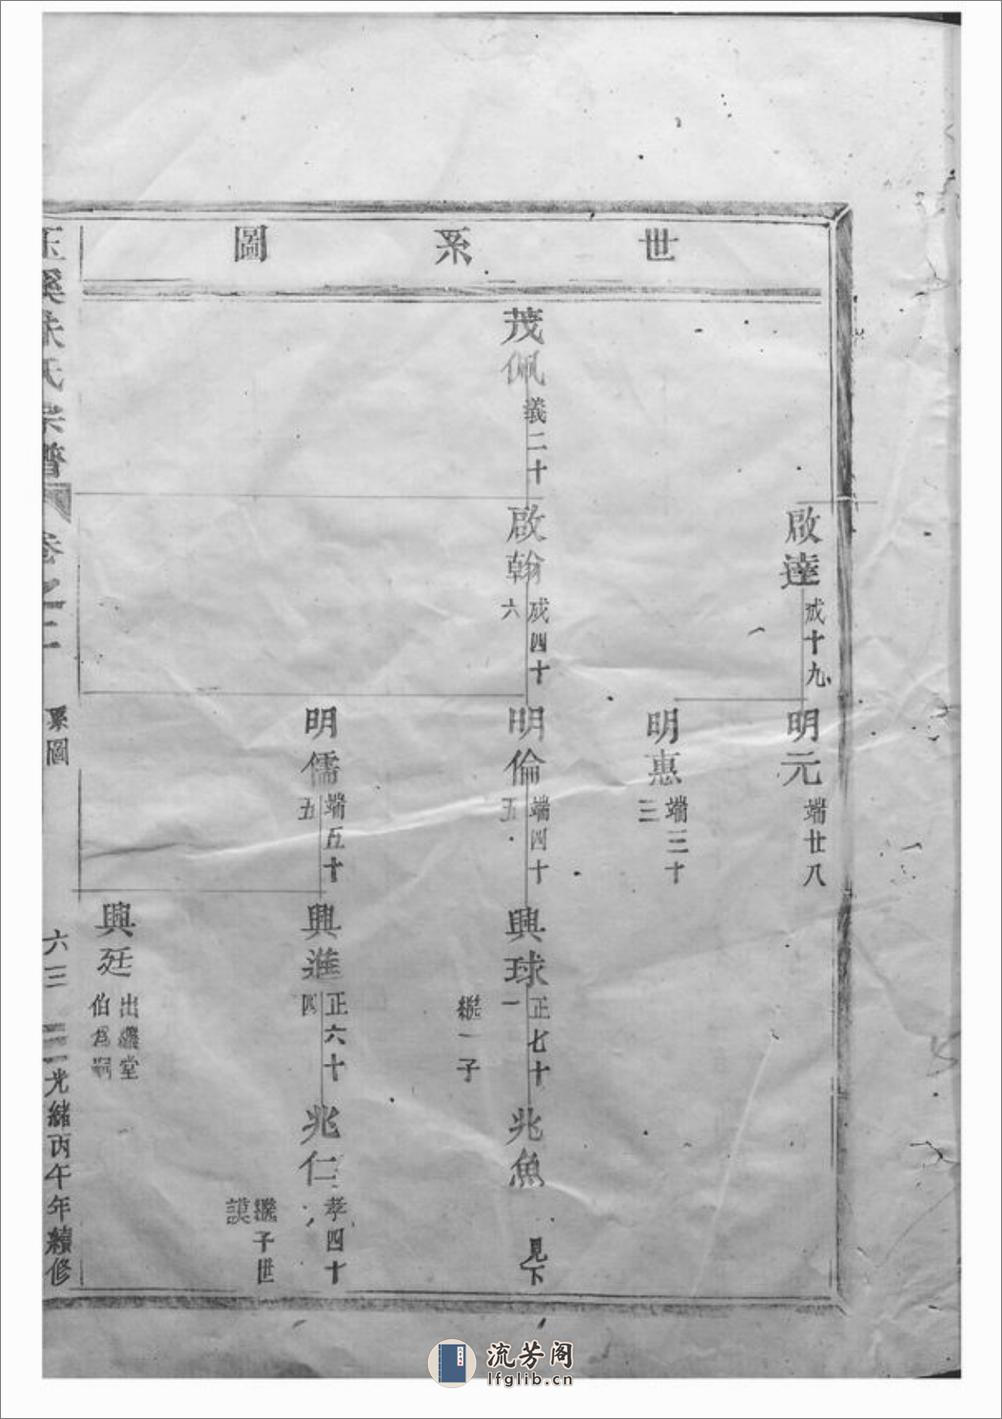 世系圖
啟達 成十九
明元 端廿八
明惠 端三十三
茂佩 義二十
啟翰 成四十六
明倫 端四十五
興球 正七十一
繼一子
兆魚
見下
明儒 端五十五
興進 正六十四
兆仁 孝四十
繼子世謨
興廷 出繼堂伯為嗣
玉溪朱氏宗譜
卷之二
系圖
六三
光緒丙午年續修
流芳阁
lfglib.cn